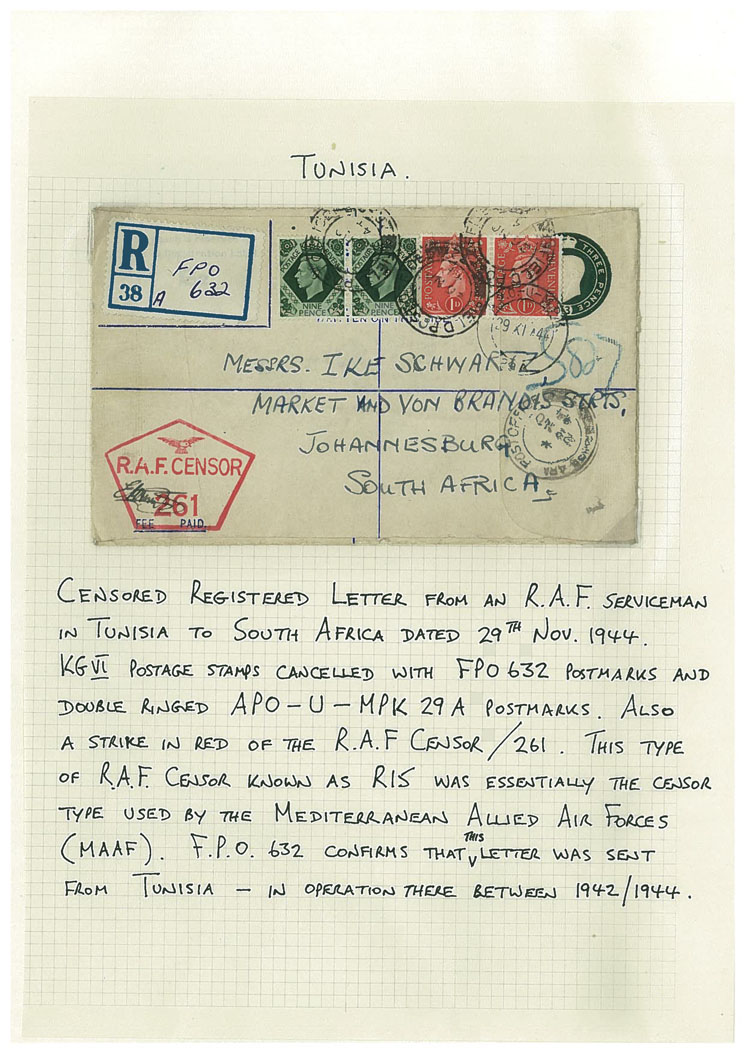 TUNISIA.
R
38
A
FPO
632
NINE PENCE
NINE PENCE
POSTAGE 1D
POSTAGE 1D
THREE PENCE
29 XI 44
MESSRS. IKE SCHWARTZ
MARKET AND VON BRANDIS STRTS,
JOHANNESBURG
SOUTH AFRICA
POST OFFICE
R.A.F. CENSOR
261
FEE PAID
CENSORED REGISTERED LETTER FROM AN R.A.F. SERVICEMAN
IN TUNISIA TO SOUTH AFRICA DATED 29TH NOV. 1944.
KGVI POSTAGE STAMPS CANCELLED WITH FPO 632 POSTMARKS AND
DOUBLE RINGED APO-U-MPK 29A POSTMARKS. ALSO
A STRIKE IN RED OF THE R.A.F CENSOR/261. THIS TYPE
OF R.A.F. CENSOR KNOWN AS R15 WAS ESSENTIALLY THE CENSOR
TYPE USED BY THE MEDITERRANEAN ALLIED AIR FORCES
(MAAF). F.P.O. 632 CONFIRMS THAT THIS LETTER WAS SENT
FROM TUNISIA - IN OPERATION THERE BETWEEN 1942/1944.